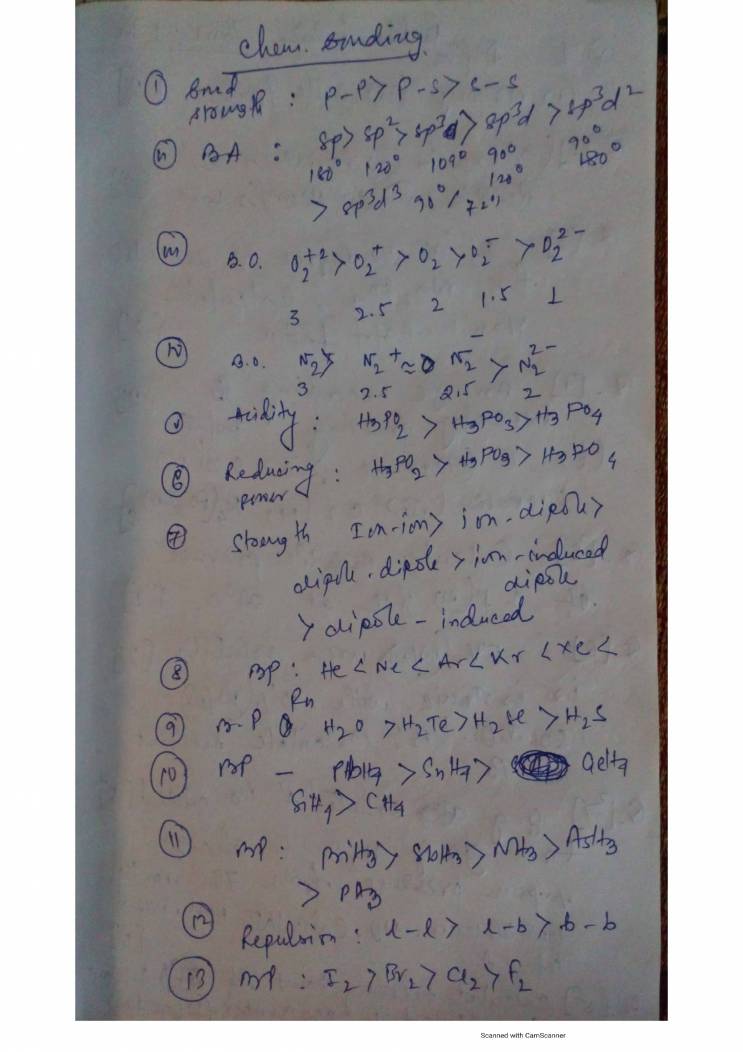 Chem. Bonding
① Bond strength : P-P > P-S > S-S
ii BA : sp > sp² > sp³ > sp³d > sp³d²
180° 120° 109° 90° 90°
120° 180°
> sp³d³ 90° / 72°
iii B.O. O₂⁺² > O₂⁺ > O₂ > O₂⁻ > O₂²⁻
3 2.5 2 1.5 1
iv B.O. N₂ > N₂⁺ ≈ N₂⁻ > N₂²⁻
3 2.5 2.5 2
v Acidity : H₃PO₂ > H₃PO₃ > H₃PO₄
⑥ Reducing power : H₃PO₂ > H₃PO₃ > H₃PO₄
⑦ Strength Ion-ion > ion-dipole >
dipole-dipole > ion-induced dipole
> dipole-induced
⑧ BP : He < Ne < Ar < Kr < Xe <
Rn
⑨ B.P H₂O > H₂Te > H₂Se > H₂S
⑩ BP - PbH₄ > SnH₄ > GeH₄
SiH₄ > CH₄
11 BP : BiH₃ > SbH₃ > NH₃ > AsH₃
> PH₃
12 Repulsion : l-l > l-b > b-b
13 BP : I₂ > Br₂ > Cl₂ > F₂
Scanned with CamScanner